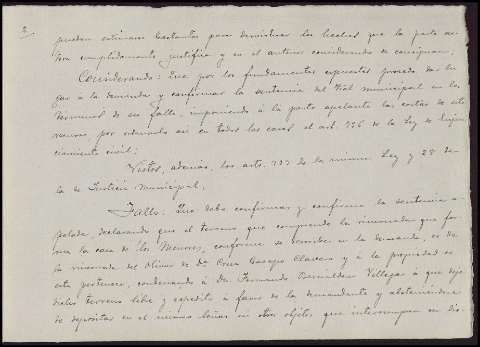 puedan estimarse bastantes para desvirtuar los hechos que la parte ac-
tora cumplidamente justifica y en el anterior considerando se consignan.
Considerando: Que por los fundamentos expuestos procede dar lu-
gar a la demanda y confirmar la sentencia del Tral municipal en los
términos de su fallo, imponiendo á la parte apelante las costas de este
recurso por ordenarlo así en todos los casos el art. 736 de la Ley de Enjui-
ciamiento civil;
Vistos, además, los arts. 733 de la misma Ley y 28 de
la de Justicia Municipal,
Fallo: Que debo confirmar y confirmo la sentencia a-
pelada, declarando que el terreno que comprende la rinconada que for-
ma la casa de los Menores, conforme se describe en la demanda, es de
la rinconada del Olivar de Dª Cruz y á la propiedad de
esta pertenece, condenando á Dn. Fernando Bernaldez Villegas á que deje
dicho terreno libre y expedito á favor de la demandante y absteniéndose
de depositar en el mismo leñas ni otros objetos que interrumpan su dis-